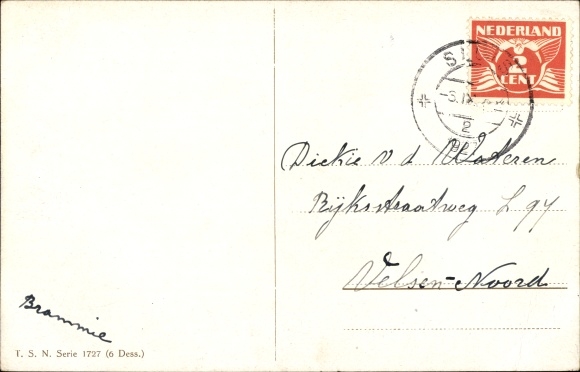 NEDERLAND
2
CENT
2
Dickie v d Wateren
Rijksstraatweg L 94
Velsen-Noord
Brammie
T. S. N. Serie 1727 (6 Dess.)